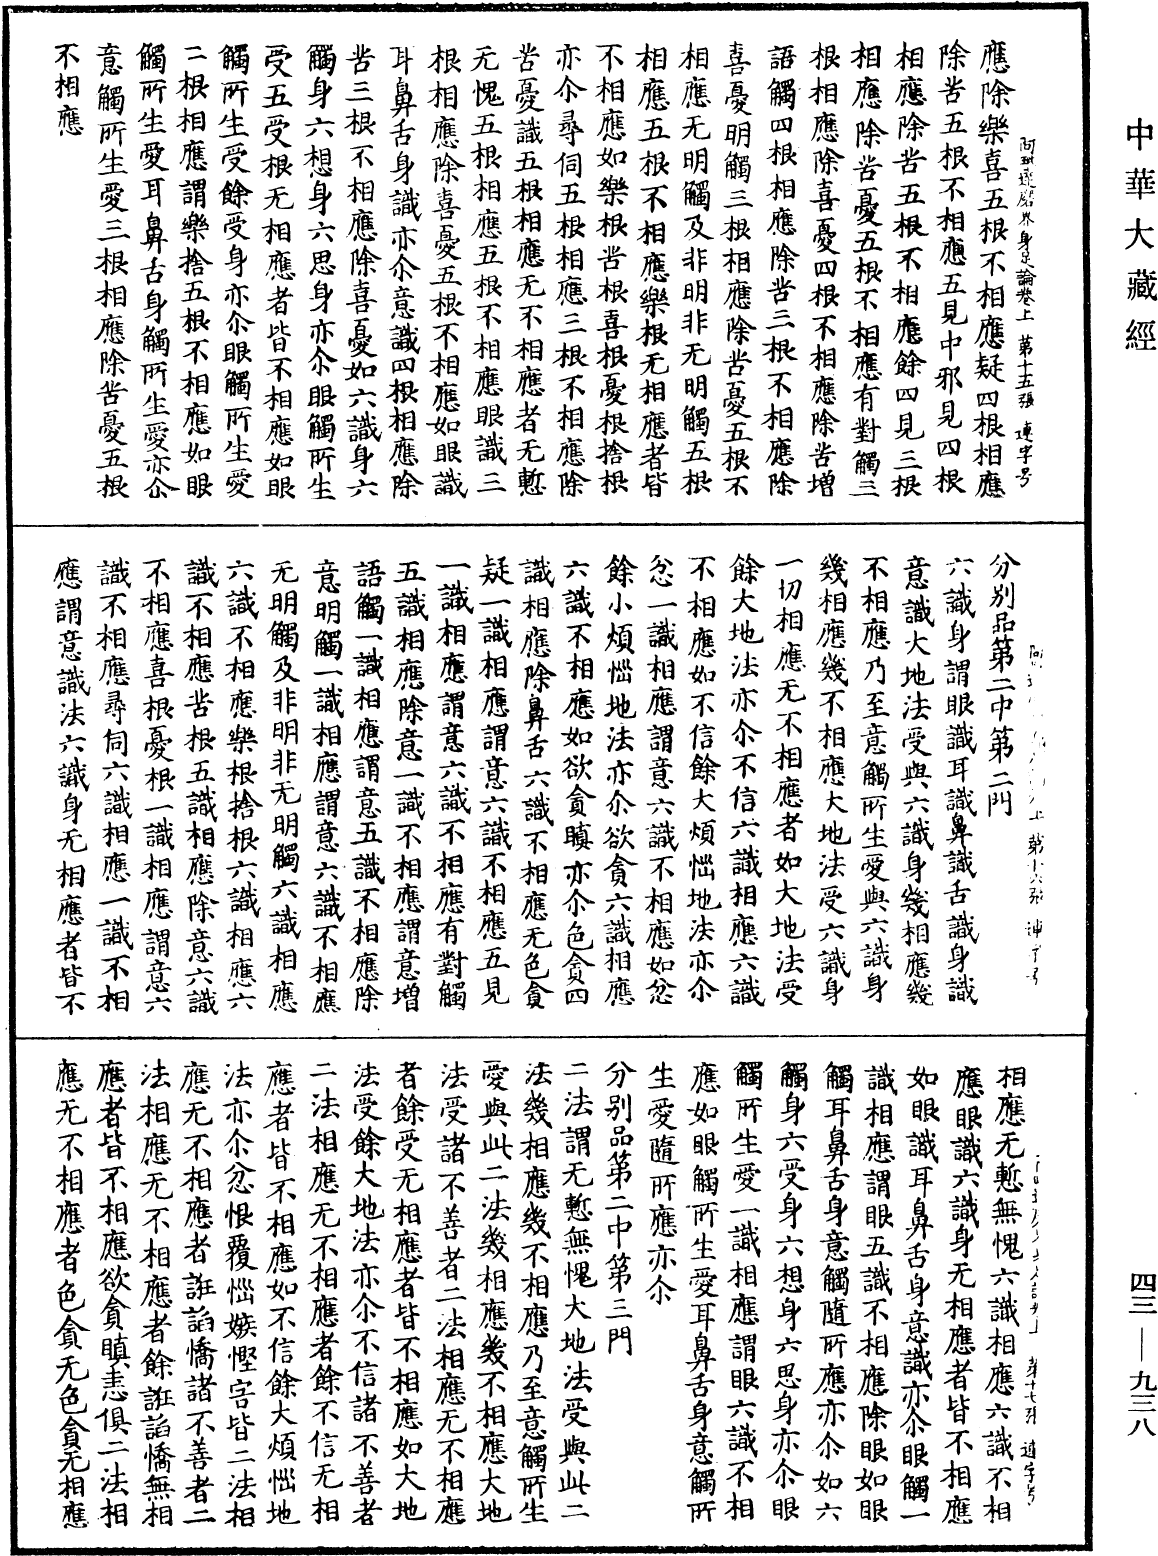 中華大藏經
四三—九三八
應除樂喜五根不相應疑四根相應
除苦五根不相應五見中邪見四根
相應除苦五根不相應餘四見三根
相應除苦憂五根不相應有對觸三
根相應除喜憂四根不相應除苦增
語觸四根相應除苦三根不相應除
喜憂明觸三根相應除苦憂五根不
相應无明觸及非明非无明觸五根
相應五根不相應樂根无相應者皆
不相應如樂根苦根喜根憂根捨根
亦尒尋伺五根相應三根不相應除
苦憂識五根相應无不相應者无慙
无愧五根相應五根不相應眼識三
根相應除喜憂五根不相應如眼識
耳鼻舌身識亦尒意識四根相應除
苦三根不相應除喜憂如六識身六
觸身六想身六思身亦尒眼觸所生
受五受根无相應者皆不相應如眼
觸所生受餘受身亦尒眼觸所生愛
二根相應謂樂捨五根不相應如眼
觸所生愛耳鼻舌身觸所生愛亦尒
意觸所生愛三根相應除苦憂五根
不相應
阿毗達磨界身足論卷上 第十五張 連字号
分別品第二中第二門
六識身謂眼識耳識鼻識舌識身識
意識大地法受與六識身幾相應幾
不相應乃至意觸所生愛與六識身
幾相應幾不相應大地法受六識身
一切相應无不相應者如大地法受
餘大地法亦尒不信六識相應六識
不相應如不信餘大煩惱地法亦尒
忿一識相應謂意六識不相應如忿
餘小煩惱地法亦尒欲貪六識相應
六識不相應如欲貪瞋亦尒色貪四
識相應除鼻舌六識不相應无色貪
疑一識相應謂意六識不相應五見
一識相應謂意六識不相應有對觸
五識相應除意一識不相應謂意增
語觸一識相應謂意五識不相應除
意明觸一識相應謂意六識不相應
无明觸及非明非无明觸六識相應
六識不相應樂根捨根六識相應六
識不相應苦根五識相應除意六識
不相應喜根憂根一識相應謂意六
識不相應尋伺六識相應一識不相
應謂意識法六識身无相應者皆不
相應无慙無愧六識相應六識不相
應眼識六識身无相應者皆不相應
如眼識耳鼻舌身意識亦尒眼觸一
識相應謂眼五識不相應除眼如眼
觸耳鼻舌身意觸隨所應亦尒如六
觸身六受身六想身六思身亦尒眼
觸所生愛一識相應謂眼六識不相
應如眼觸所生愛耳鼻舌身意觸所
生愛隨所應亦尒
分別品第二中第三門
二法謂无慙無愧大地法受與此二
法幾相應幾不相應乃至意觸所生
愛與此二法幾相應幾不相應大地
法受諸不善者二法相應无不相應
者餘受无相應者皆不相應如大地
法受餘大地法亦尒不信諸不善者
二法相應无不相應者餘不信无相
應者皆不相應如不信餘大煩惱地
法亦尒忿恨覆惱嫉慳害皆二法相
應无不相應者誑諂憍諸不善者二
法相應无不相應者餘誑諂憍無相
應者皆不相應欲貪瞋恚俱二法相
應无不相應者色貪无色貪无相應